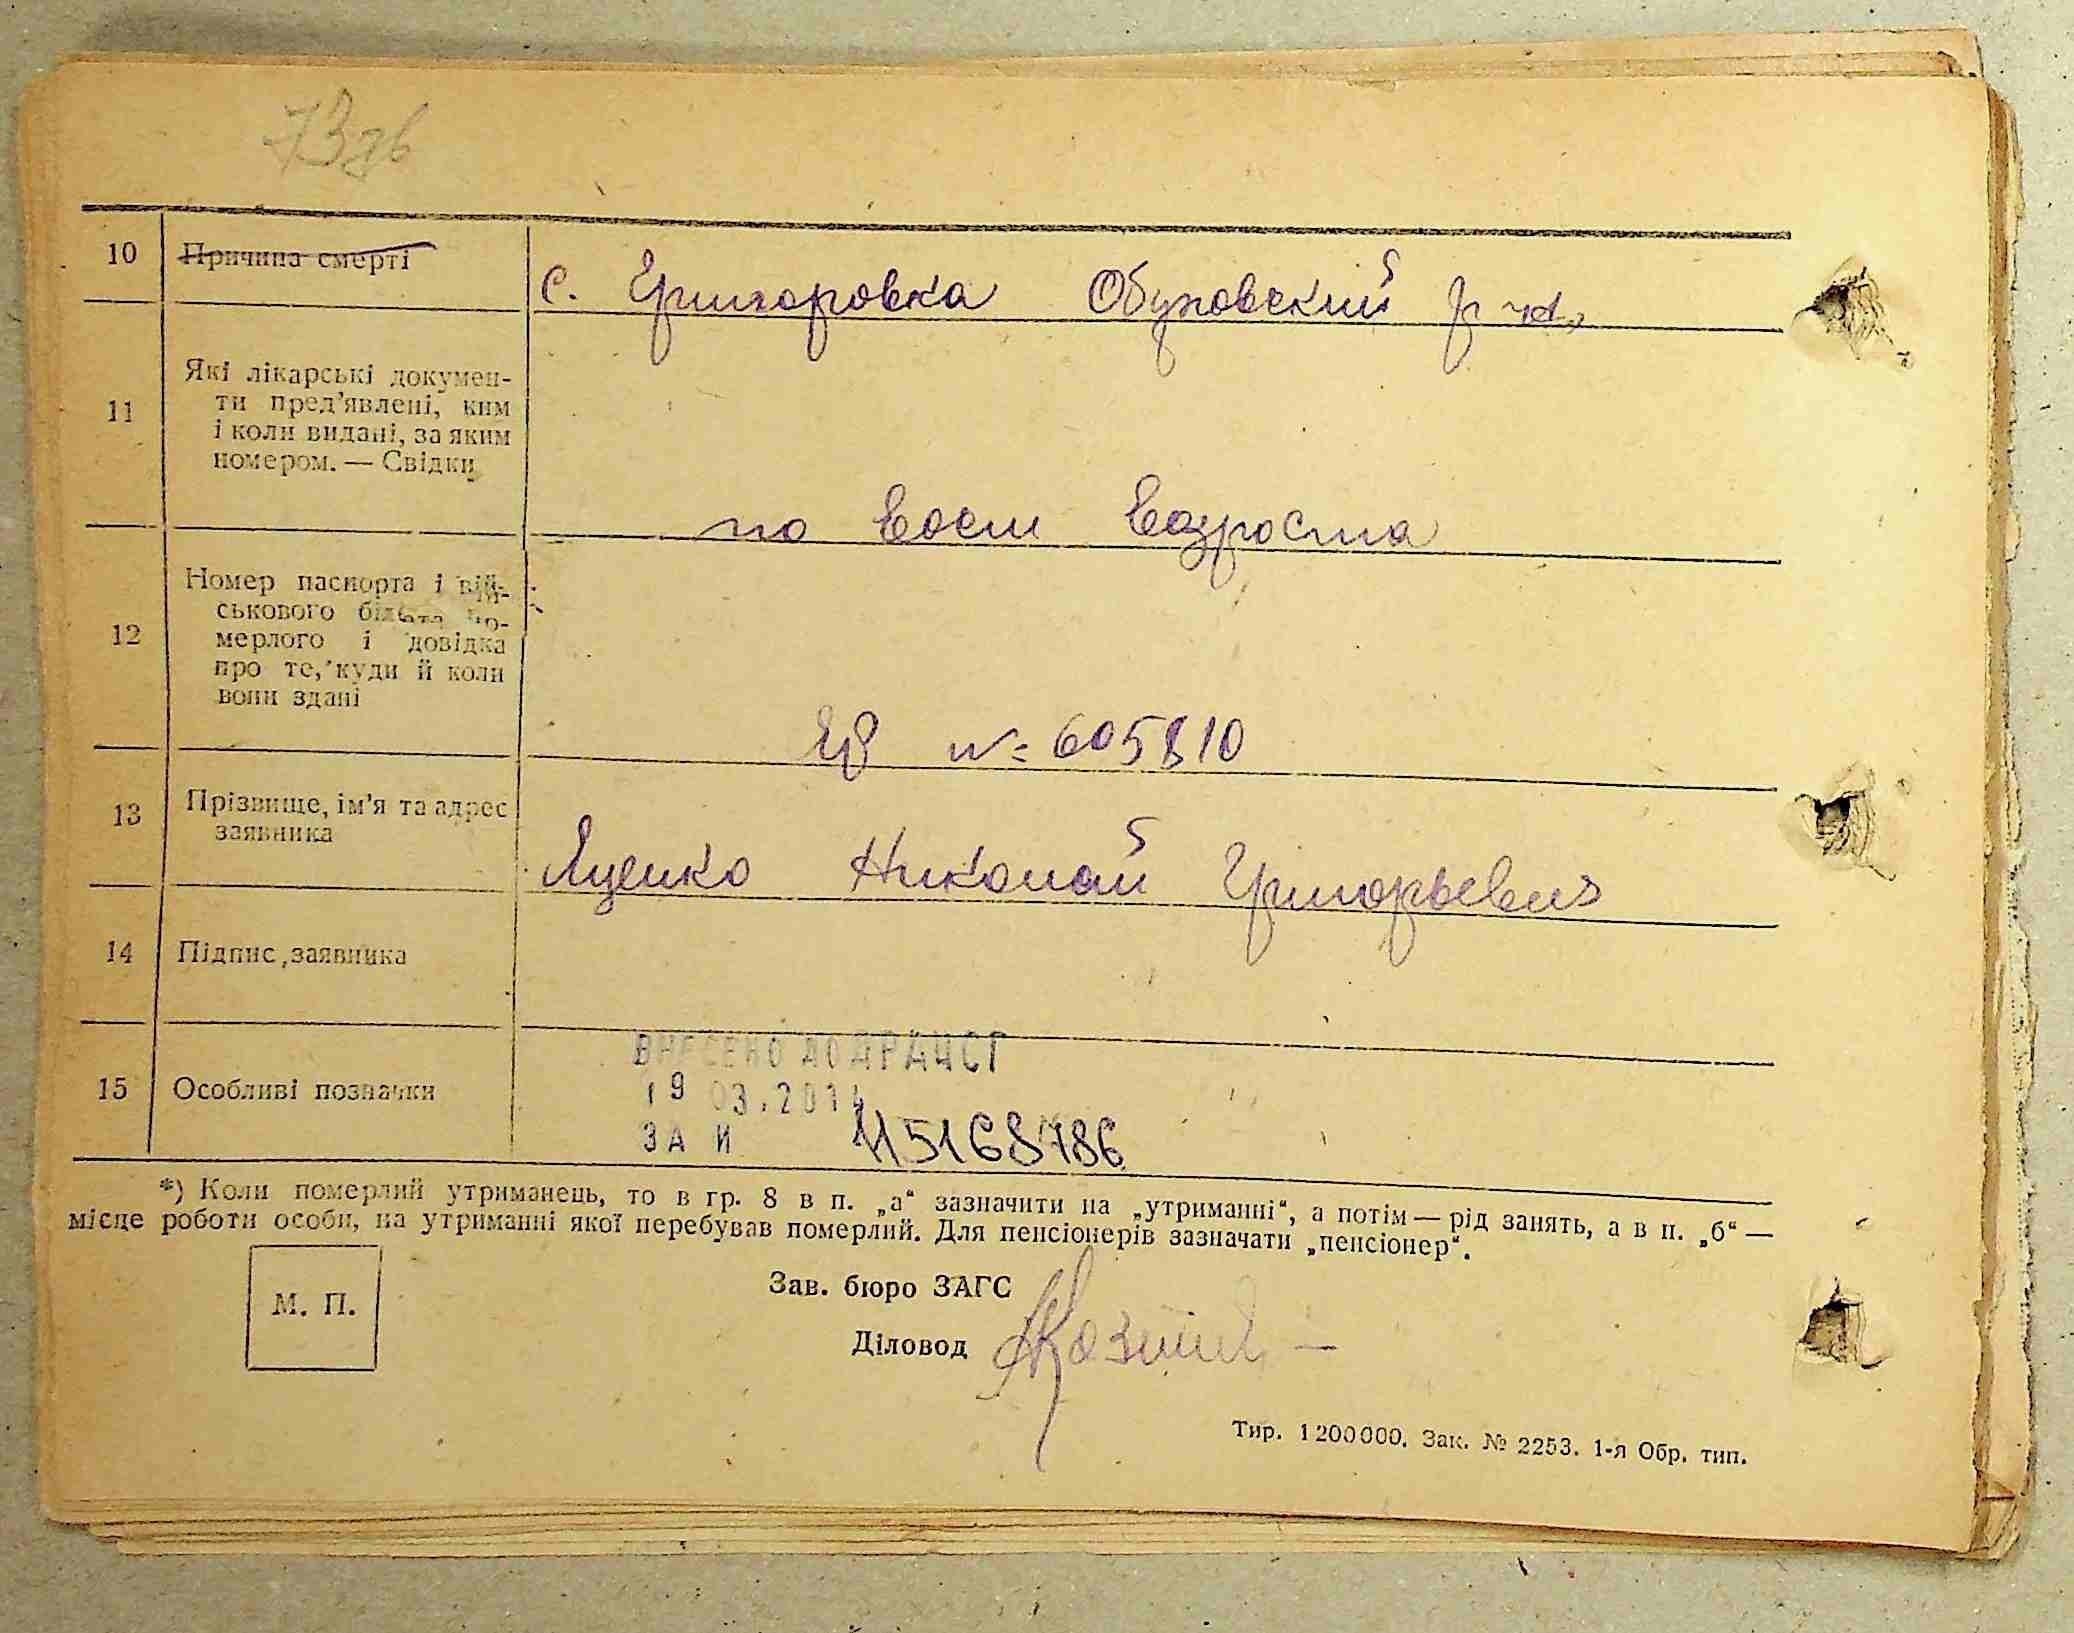 73зв
10 Причина смерті
с. Григоровка Обуховский р-н,
11 Які лікарські докумен-
ти пред'явлені, ким
і коли видані, за яким
номером. — Свідки
по воен возроста
12 Номер паспорта і вій-
ськового білета по-
мерлого і довідка
про те, куди й коли
вони здані
№ 605810
13 Прізвище, ім'я та адрес
заявника
Яценко Николай Григорьевич
14 Підпис заявника
15 Особливі позначки
ВНЕСЕНО ДО ДРАЦСГ
19 03.2014
ЗА И 115168786
*) Коли померлий утриманець, то в гр. 8 в п. „а“ зазначити на „утриманні“, а потім — рід занять, а в п. „б“ —
місце роботи особи, на утриманні якої перебував померлий. Для пенсіонерів зазначати „пенсіонер“.
М. П.
Зав. бюро ЗАГС
Діловод
Тир. 1 200 000. Зак. № 2253. 1-я Обр. тип.